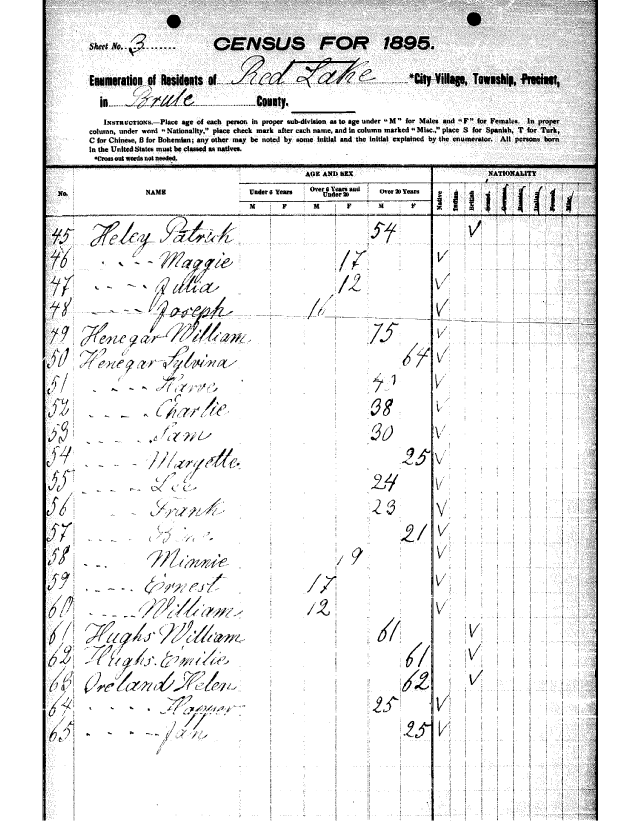 Sheet No. 3
CENSUS FOR 1895.
Enumeration of Residents of Red Lake *City Village, Township, Precinct,
in Brule County.
INSTRUCTIONS.—Place age of each person in proper sub-division as to age under "M" for Males and "F" for Females. In proper
column, under word "Nationality," place check mark after each name, and in column marked "Misc.," place S for Spanish, T for Turk,
C for Chinese, B for Bohemian; any other may be noted by some initial and the initial explained by the enumerator. All persons born
in the United States must be classed as natives.
*Cross out words not needed.
AGE AND SEX NATIONALITY
No. NAME Under 6 Years Over 6 Years and Under 20 Over 20 Years Native Indian British
M F M F M F
45 Heley Patrick 54 ✓
46 - - - - Maggie 17 ✓
47 - - - - Julia 12 ✓
48 - - - - Joseph ✓
49 Henegar William 75 ✓
50 Henegar Sylvina 64 ✓
51 - - - - Harve ✓
52 - - - - Charlie 38 ✓
53 - - - - Sam 30 ✓
54 - - - - Maryette 25 ✓
55 - - - - Lee 24 ✓
56 - - - - Frank 23 ✓
57 - - - - 21 ✓
58 - - - - Minnie 19 ✓
59 - - - - Ernest 17 ✓
60 - - - - William 12 ✓
61 Hughs William 61 ✓
62 Hughs Emilie 61 ✓
63 Oreland Helen 62 ✓
64 - - - - Happer 25 ✓
65 - - - - Jan 25 ✓